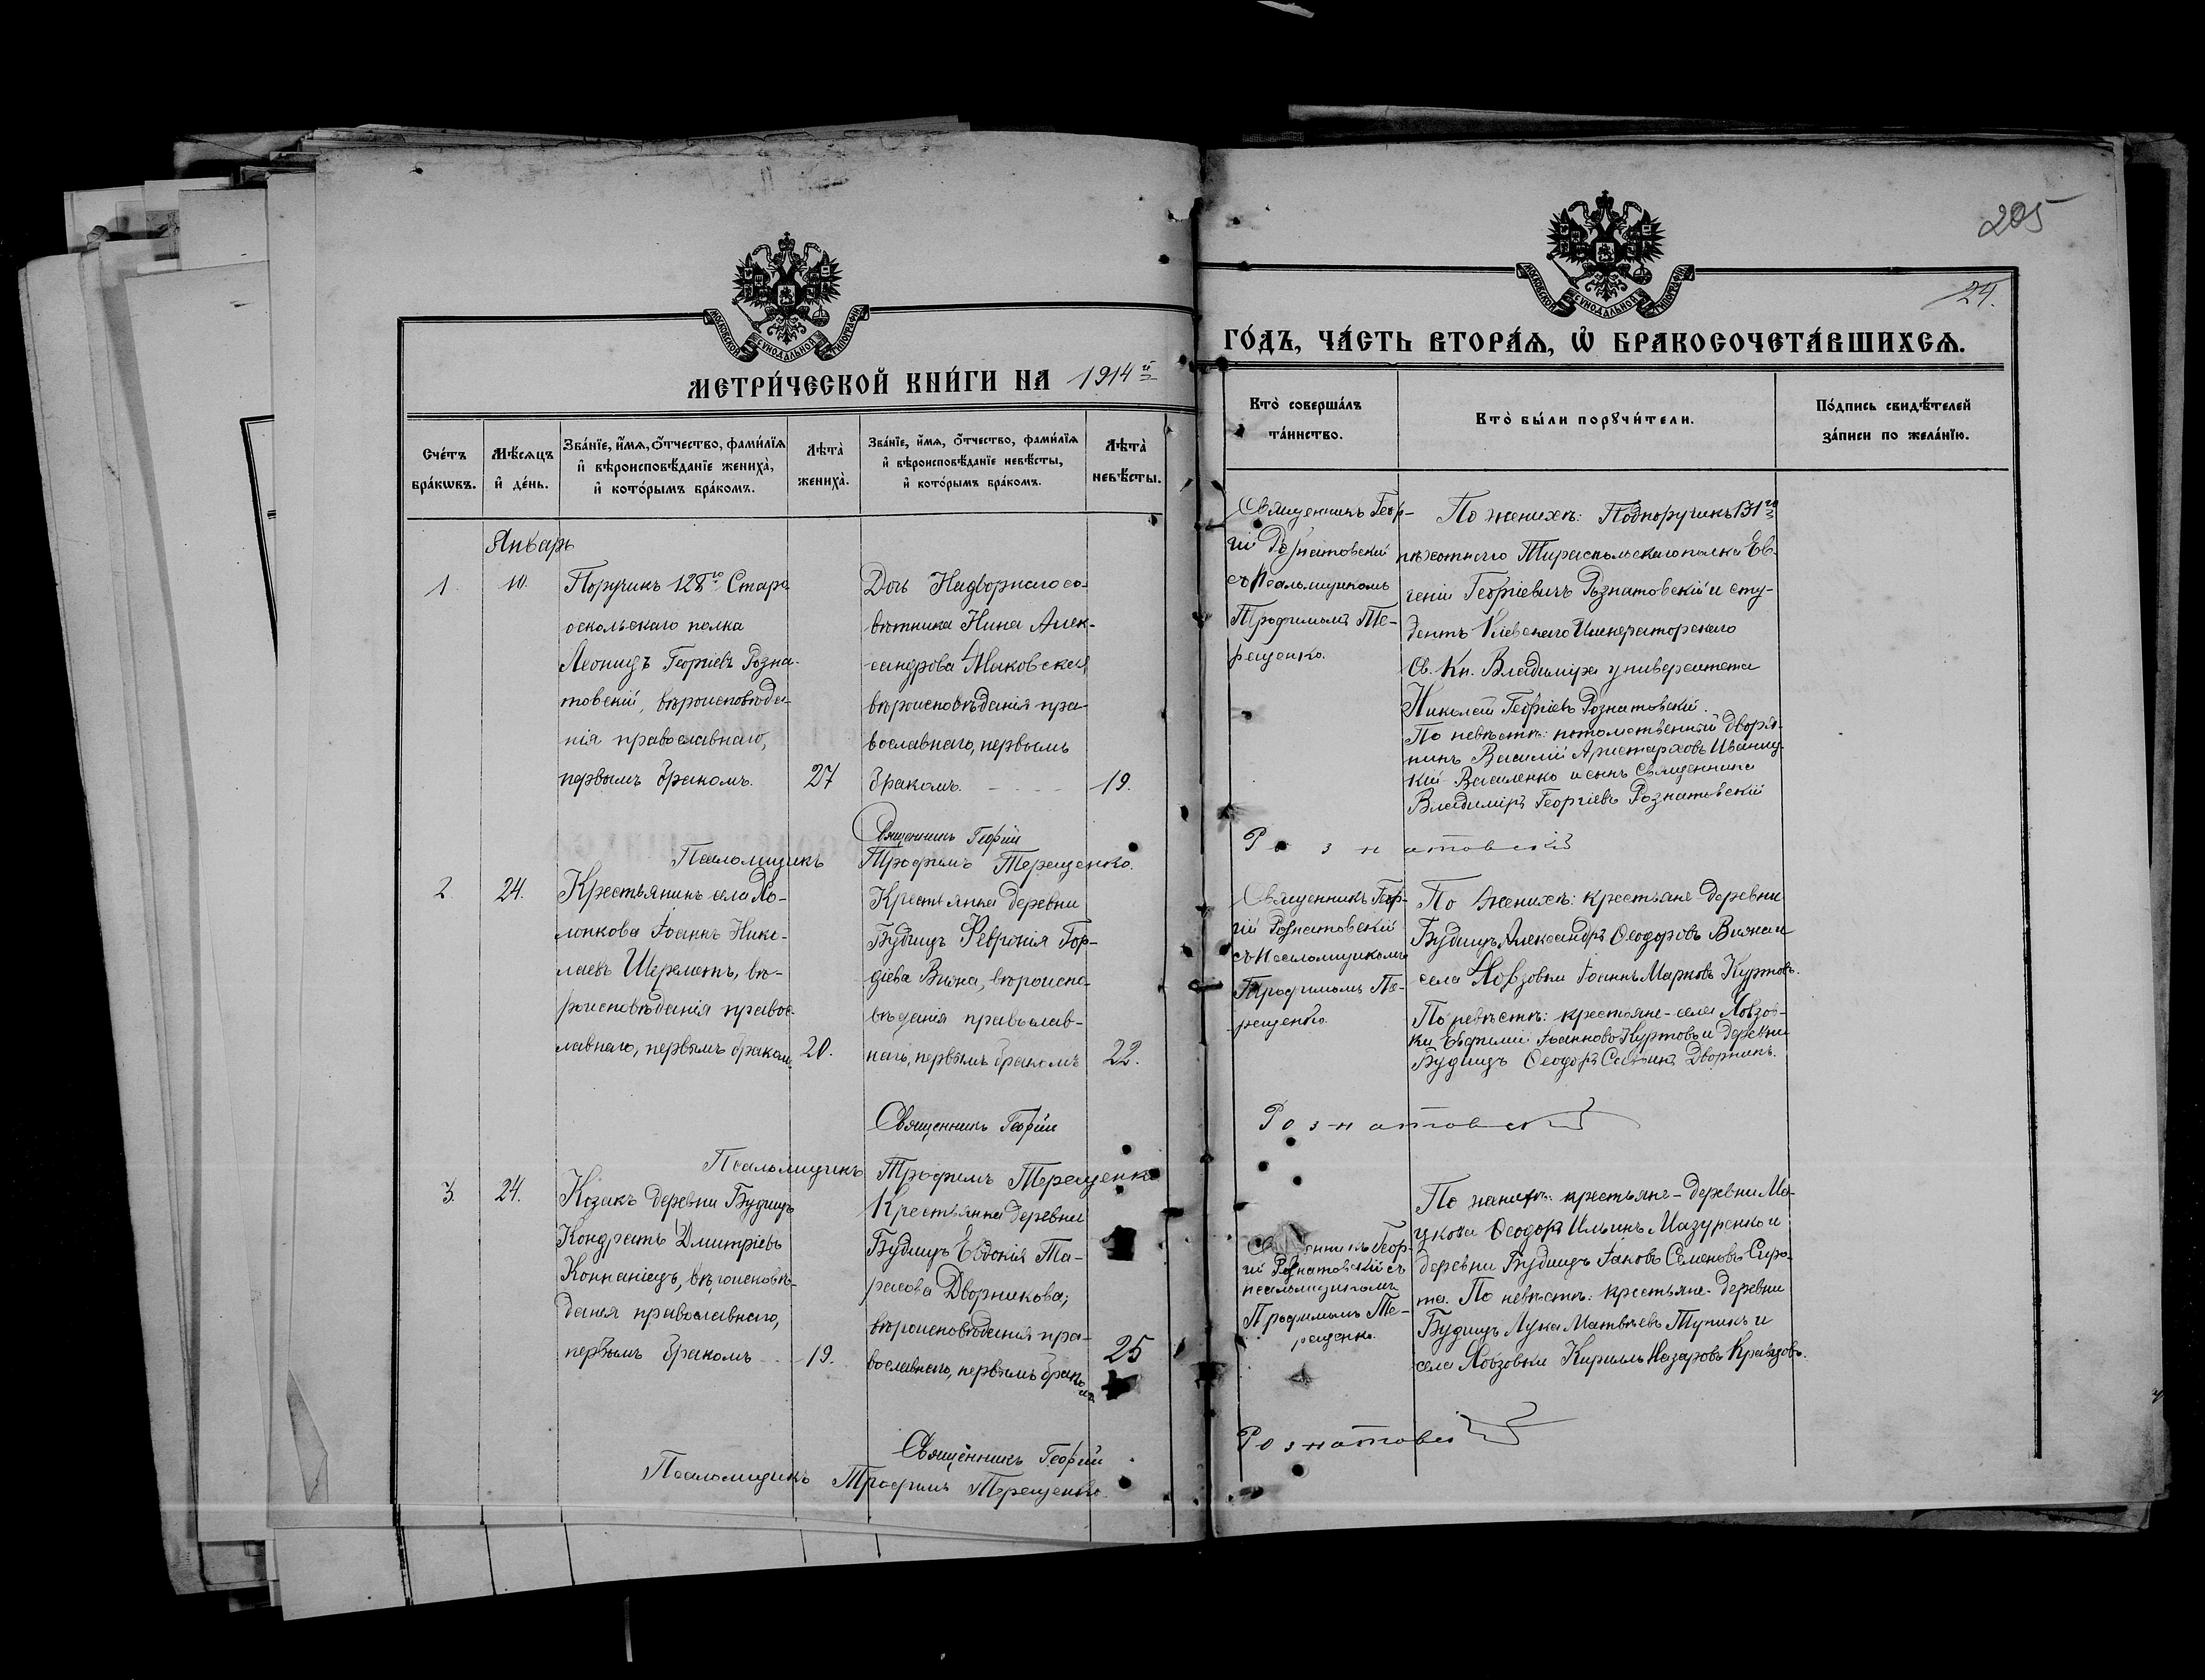 205
24.
МОСКОВСКОЙ СѴНОДАЛЬНОЙ ТИПОГРАФІИ
МОСКОВСКОЙ СѴНОДАЛЬНОЙ ТИПОГРАФІИ
МЕТРИ́ЧЕСКОЙ КНИ́ГИ НА 1914й
ГО́ДЪ, ЧА́СТЬ ВТОРА́Ѧ, Ѡ БРАКОСОЧЕТА́ВШИХСѦ.
Сче́тъ бра́кѡвъ.
Мѣ́сѧцъ и҆ де́нь.
Зва́нїе, и҆́мѧ, ѻ҆́тчество, фами́лїѧ и҆ вѣроисповѣ́данїе жениха̀, и҆ кото́рымъ бра́комъ.
Лѣта̀ жениха̀.
Зва́нїе, и҆́мѧ, ѻ҆́тчество, фами́лїѧ и҆ вѣроисповѣ́данїе невѣ́сты, и҆ кото́рымъ бра́комъ.
Лѣта̀ невѣ́сты.
Кто̀ соверша́лъ та́инство.
Кто̀ бы́ли порꙋчи́тели.
По́дпись свидѣ́телей за́писи по жела́нїю.
Январь
1.
10.
Поручикъ 128го Старо-
оскольскаго полка
Леонидъ Георгіевъ Розна-
товскій, вѣроисповѣда-
нія православнаго,
первымъ бракомъ.
27
Дочь Надворнаго со-
вѣтника Нина Алек-
сандрова Маковская
вѣроисповѣданія пра-
вославнаго, первымъ
бракомъ.
19.
Священникъ Геор-
гій Рознатовскій
съ Псаломщикомъ
Трофимомъ Те-
рещенко.
По женихѣ: Подпоручикъ 131го
пѣхотнаго Тираспольскаго полка Ев-
геній Георгіевичъ Рознатовскій и сту-
дентъ Кіевскаго Императорскаго
Св. Кн. Владимира университета
Николай Георгіевъ Рознатовскій.
По невѣстѣ: потомственный дворя-
нинъ Василій Аристарховъ Иваниц-
кій-Василенко и сынъ Священника
Владиміръ Георгіевъ Рознатовскій
Священникъ Георгій Рознатовскій
Псаломщикъ Трофимъ Терещенко.
2.
24.
Крестьянинъ села Хо-
лопкова Іоаннъ Нико-
лаевъ Шереметъ, вѣ-
роисповѣданія правос-
лавнаго, первымъ бракомъ.
20.
Крестьянка деревни
Будищъ Февронія Гор-
діева Вьяна, вѣроиспо-
вѣданія православ-
наго, первымъ бракомъ
22.
Священникъ Геор-
гій Рознатовскій
съ Псаломщикомъ
Трофимомъ Те-
рещенко.
По женихѣ: крестьяне деревни
Будищъ Александръ Ѳеодоровъ Вьяна и
села Ховзовки Іоаннъ Марковъ Куртовъ.
По невѣстѣ: крестьяне села Ховзов-
ки Евфимій Іоанновъ Куртовъ и деревни
Будищъ Ѳеодоръ Саввинъ Дворникъ.
Священникъ Георгій Рознатовскій
Псаломщикъ Трофимъ Терещенко
3.
24.
Козакъ деревни Будищъ
Кондратъ Дмитріевъ
Компаніецъ, вѣроисповѣ-
данія православнаго,
первымъ бракомъ
19.
Крестьянка деревни
Будищъ Евдокія Та-
расова Дворникова,
вѣроисповѣданія пра-
вославнаго, первымъ бракомъ
25
Священникъ Геор-
гій Рознатовскій съ
псаломщикомъ
Трофимомъ Те-
рещенко.
По женихѣ: крестьяне деревни Ма-
цкова Ѳеодоръ Ильинъ Мазуренко и
деревни Будищъ Іаковъ Семеновъ Сиро-
та. По невѣстѣ: крестьяне деревни
Будищъ Лука Матвѣевъ Тупикъ и
села Ховзовки Кириллъ Назаровъ Кравцовъ.
Священникъ Георгій Рознатовскій
Псаломщикъ Трофимъ Терещенко.